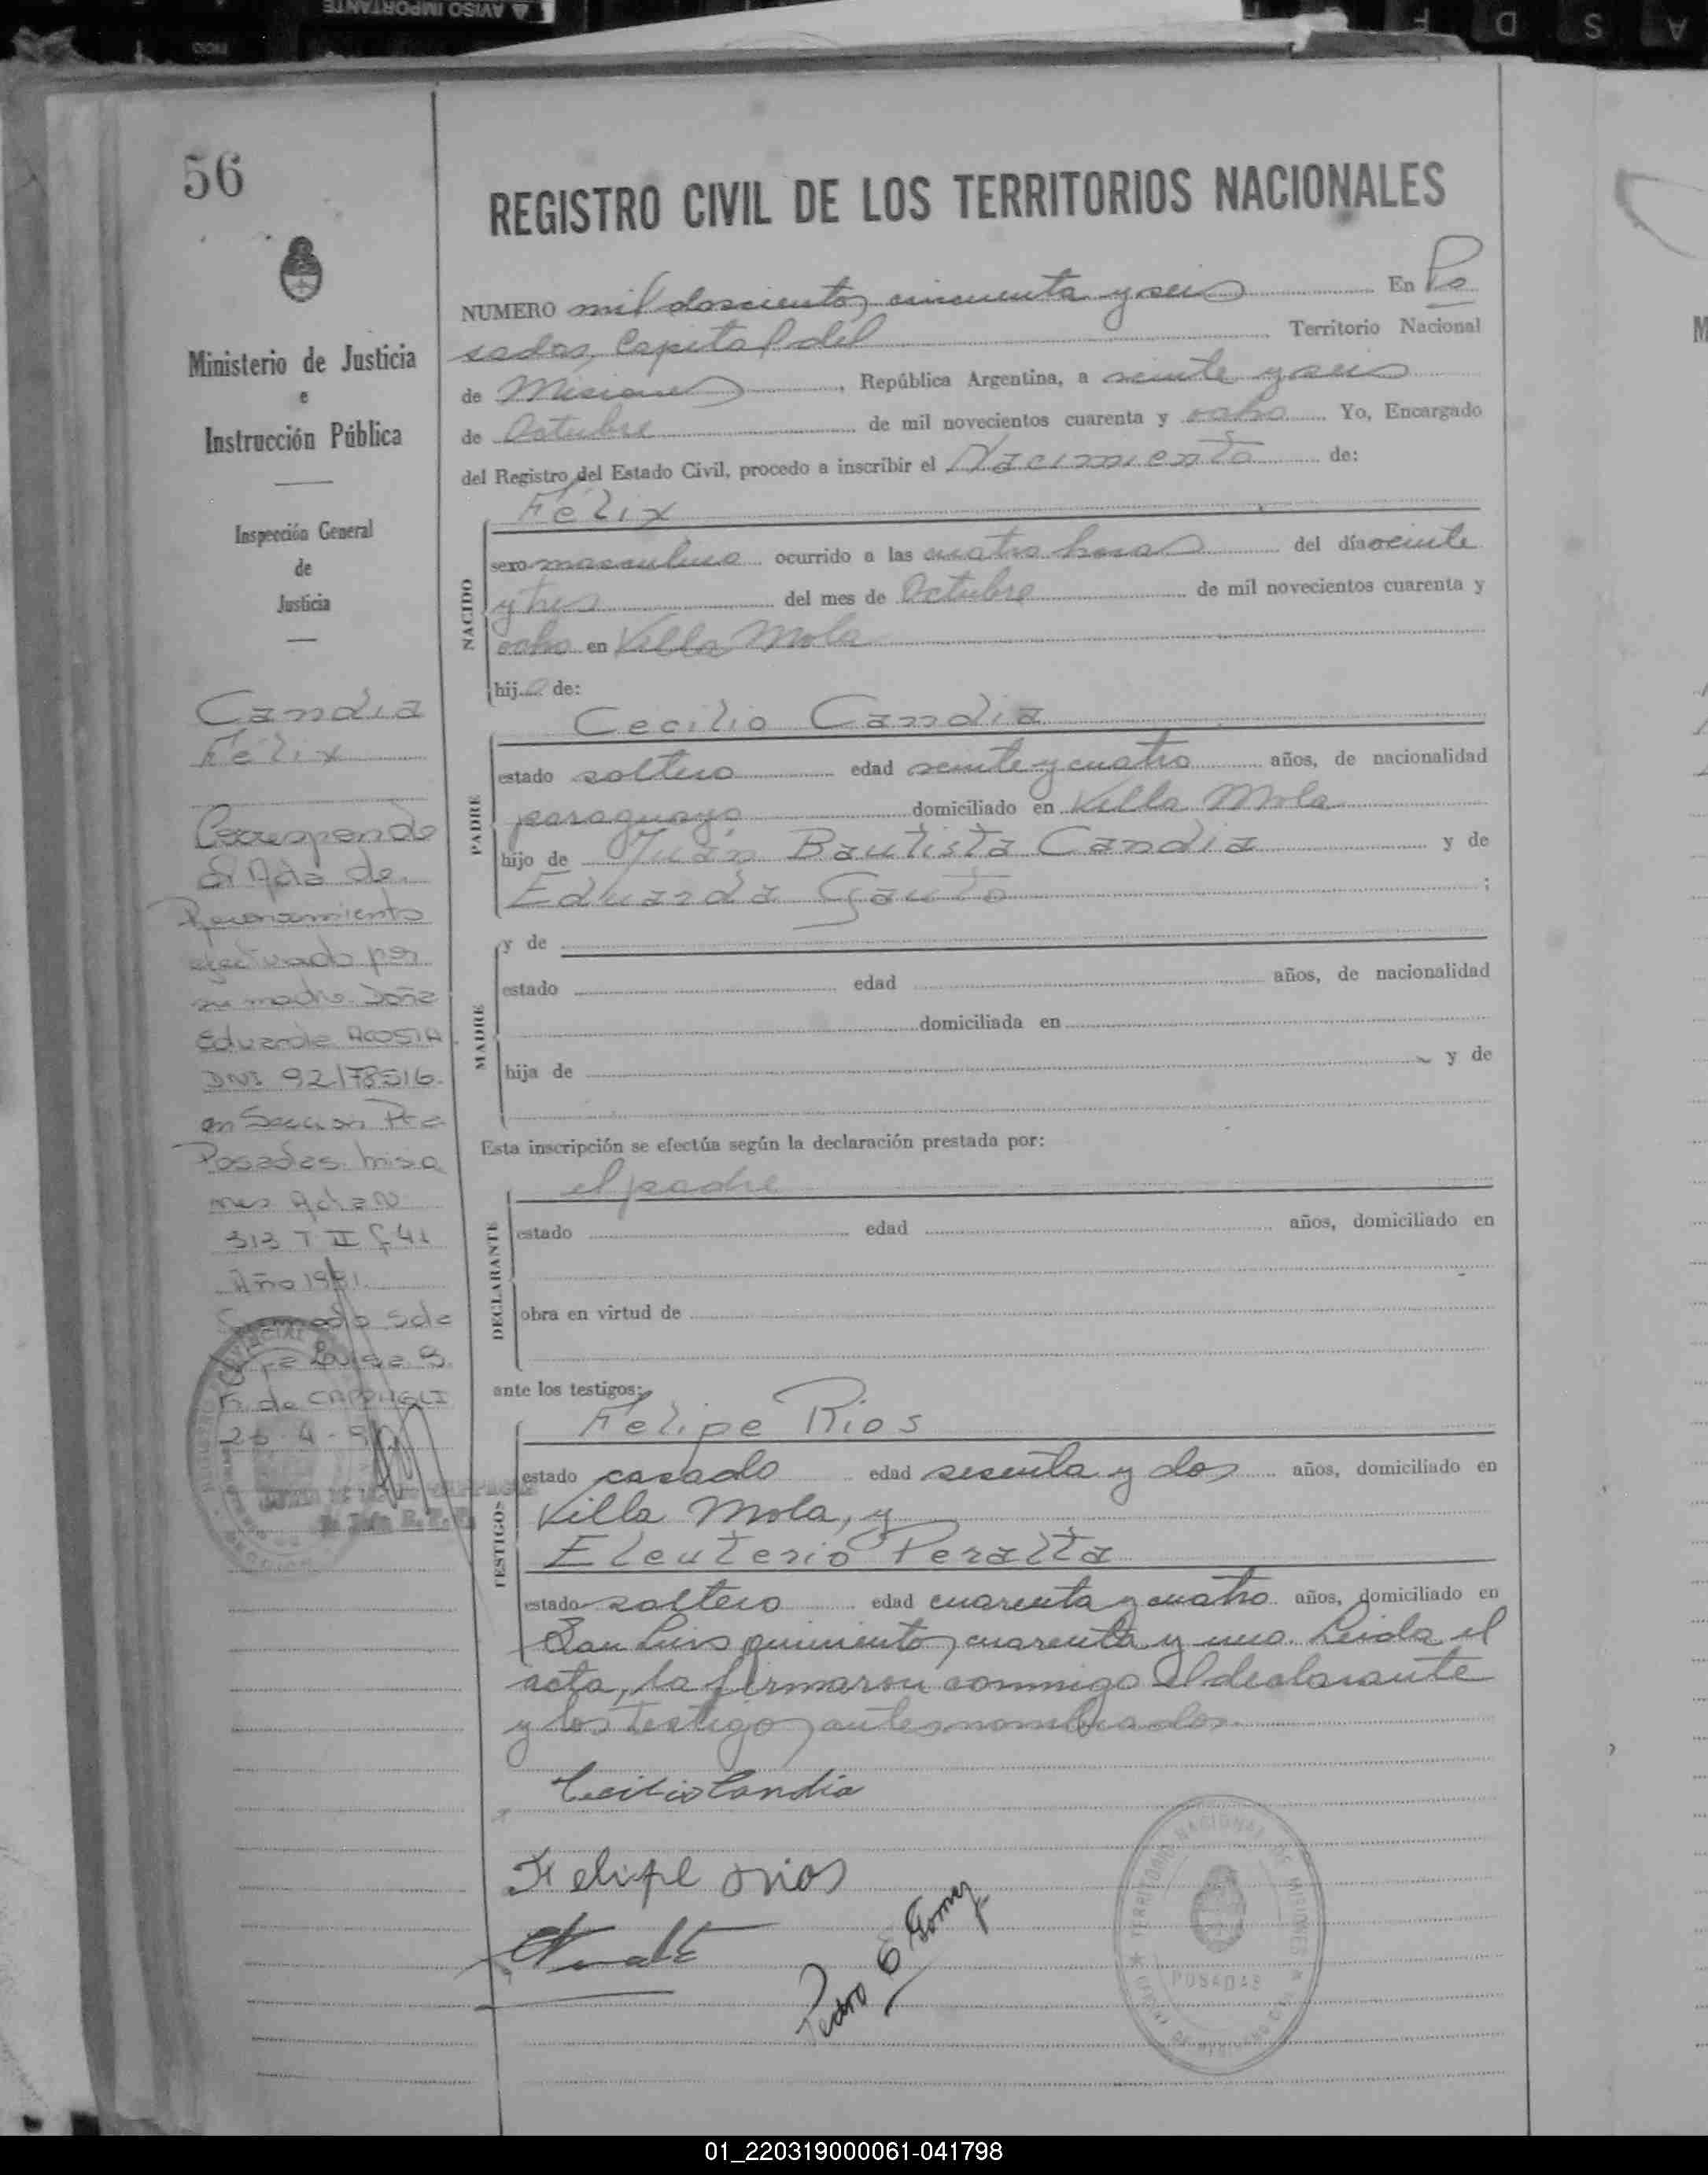 AVISO IMPORTANTE
A S D F
56
REGISTRO CIVIL DE LOS TERRITORIOS NACIONALES
Ministerio de Justicia
e
Instrucción Pública
Inspección General
de
Justicia
Candia
Félix
Corresponde
al Acta de
Reconocimiento
efectuado por
su madre Doña
Eduarda ACOSTA
DNI 92178516.
en Sección Pta
Posadas Misio
nes Acta Nº
313 T II f 41
Año 1981.
NUMERO mil doscientos cincuenta y seis En Po
sadas, Capital del Territorio Nacional
de Misiones, República Argentina, a veinte y seis
de Octubre de mil novecientos cuarenta y ocho Yo, Encargado
del Registro del Estado Civil, procedo a inscribir el Nacimiento de:
Félix
NACIDO
sexo masculino ocurrido a las cuatro horas del día veinte
y tres del mes de Octubre de mil novecientos cuarenta y
ocho en Villa Mola
hijo de:
Cecilio Candia
PADRE
estado soltero edad veinte y cuatro años, de nacionalidad
paraguayo domiciliado en Villa Mola
hijo de Juan Bautista Candia y de
Eduarda Gauto ;
MADRE
y de
estado edad años, de nacionalidad
domiciliada en
hija de y de
Esta inscripción se efectúa según la declaración prestada por:
el padre
DECLARANTE
estado edad años, domiciliado en
obra en virtud de
ante los testigos:
Felipe Rios
TESTIGOS
estado casado edad sesenta y dos años, domiciliado en
Villa Mola, y
Eleuterio Peralta
estado soltero edad cuarenta y cuatro años, domiciliado en
San Luis quinientos cuarenta y uno. Leida el
acta, la firmaron conmigo el declarante
y los testigos antes nombrados.
Cecilio Candia
Felipe Rios
Pedro E Gomez
TERRITORIO NACIONAL DE MISIONES
POSADAS
01_220319000061-041798